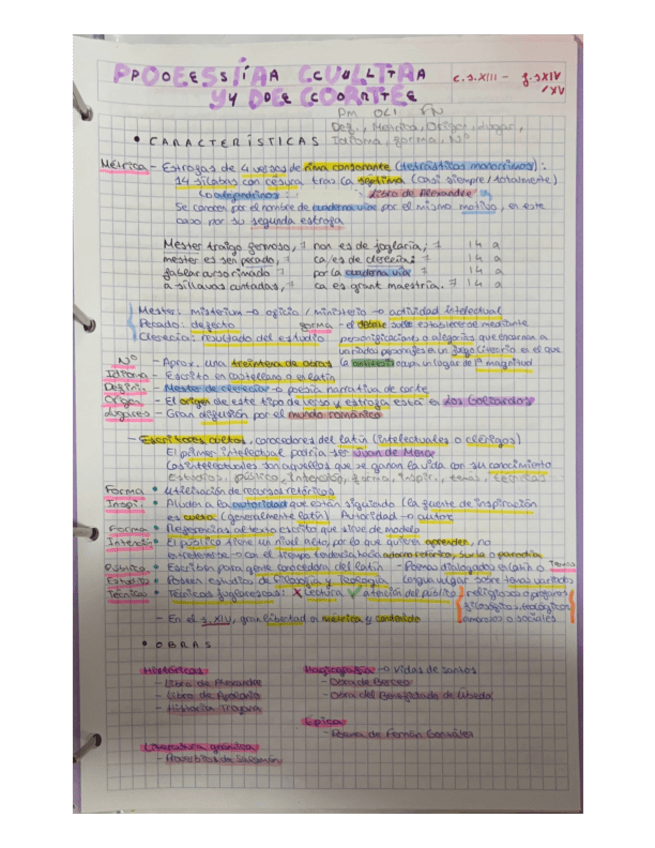 POESÍA CULTA
Y DE CORTE
c. s. XIII - f. s XIV
/XV
Def., Métrica, Origen, Lugar,
Idioma, forma, Nº
• CARACTERÍSTICAS
Métrica - Estrofas de 4 versos de rima consonante (tetrásticos monorrimos):
14 sílabas con cesura tras la séptima (casi siempre / totalmente)
Libro de Alexandre
Se conocen por el nombre de cuaderna vía por el mismo motivo, en este
caso por su segunda estrofa
Mester traigo fermoso, 7 non es de joglaría, 7 14 a
mester es sen pecado, 7 ca es de clerecía; 7 14 a
fablar curso rimado 7 por la cuaderna vía 7 14 a
a sílavas cuntadas, 7 ca es grant maestría. 7 14 a
Mester: misterium → oficio / ministerio → actividad intelectual
Pecado: defecto
Clerecía: resultado del estudio
Forma - el debate suele establecerse mediante
personificaciones o alegorías que encarnan a
variados personajes en un juego literario en el que
la ocupa un lugar de 1ª magnitud
Nº - Aprox. una treintena de obras
Idioma - Escrito en castellano o en latín
Defini. - Mester de clerecía → poesía narrativa de corte
Origen - El origen de este tipo de verso y estrofa está en los Goliardos
Lugares - Gran difusión por el mundo románico
- Escritores cultos, conocedores del latín (intelectuales o clérigos)
El primer intelectual podría ser Juan de Mena
Los intelectuales son aquellos que se ganan la vida con su conocimiento
Estudios, público, forma, inspir., temas, técnicas
Forma • Utilización de recursos retóricos
Inspi. • Aluden a la autoridad que están siguiendo (la fuente de inspiración
es culta (generalmente latín) Autoridad → autor
Forma • Referencias al texto escrito que sirve de modelo
Intenció • El público tiene un nivel alto, por lo que quieren aprender, no
entretenerse → con el tiempo tendencia hacia adorno retórico, burla o parodia
Público • Escriben para gente conocedora del latín - Poemas dialogados en latín o Temas
Estudio • Poseen estudios de Filosofía y Teología lengua vulgar sobre temas variados
Técnicas • Técnicas juglarescas: ✗ Lectura ✓ atención del público religiosos o profanos
filosóficos, teológicos
amorosos o sociales
- En el s. XIV, gran libertad en métrica y contenido
• OBRAS
Históricas
- Libro de Alexandre
- Libro de Apolonio
- Historia Troyana
Hagiografía → Vidas de santos
- Obra de Berceo
- Obra del Beneficiado de Úbeda
Épica
- Poema de Fernán González
Literatura gnómica
- Proverbios de Salomón